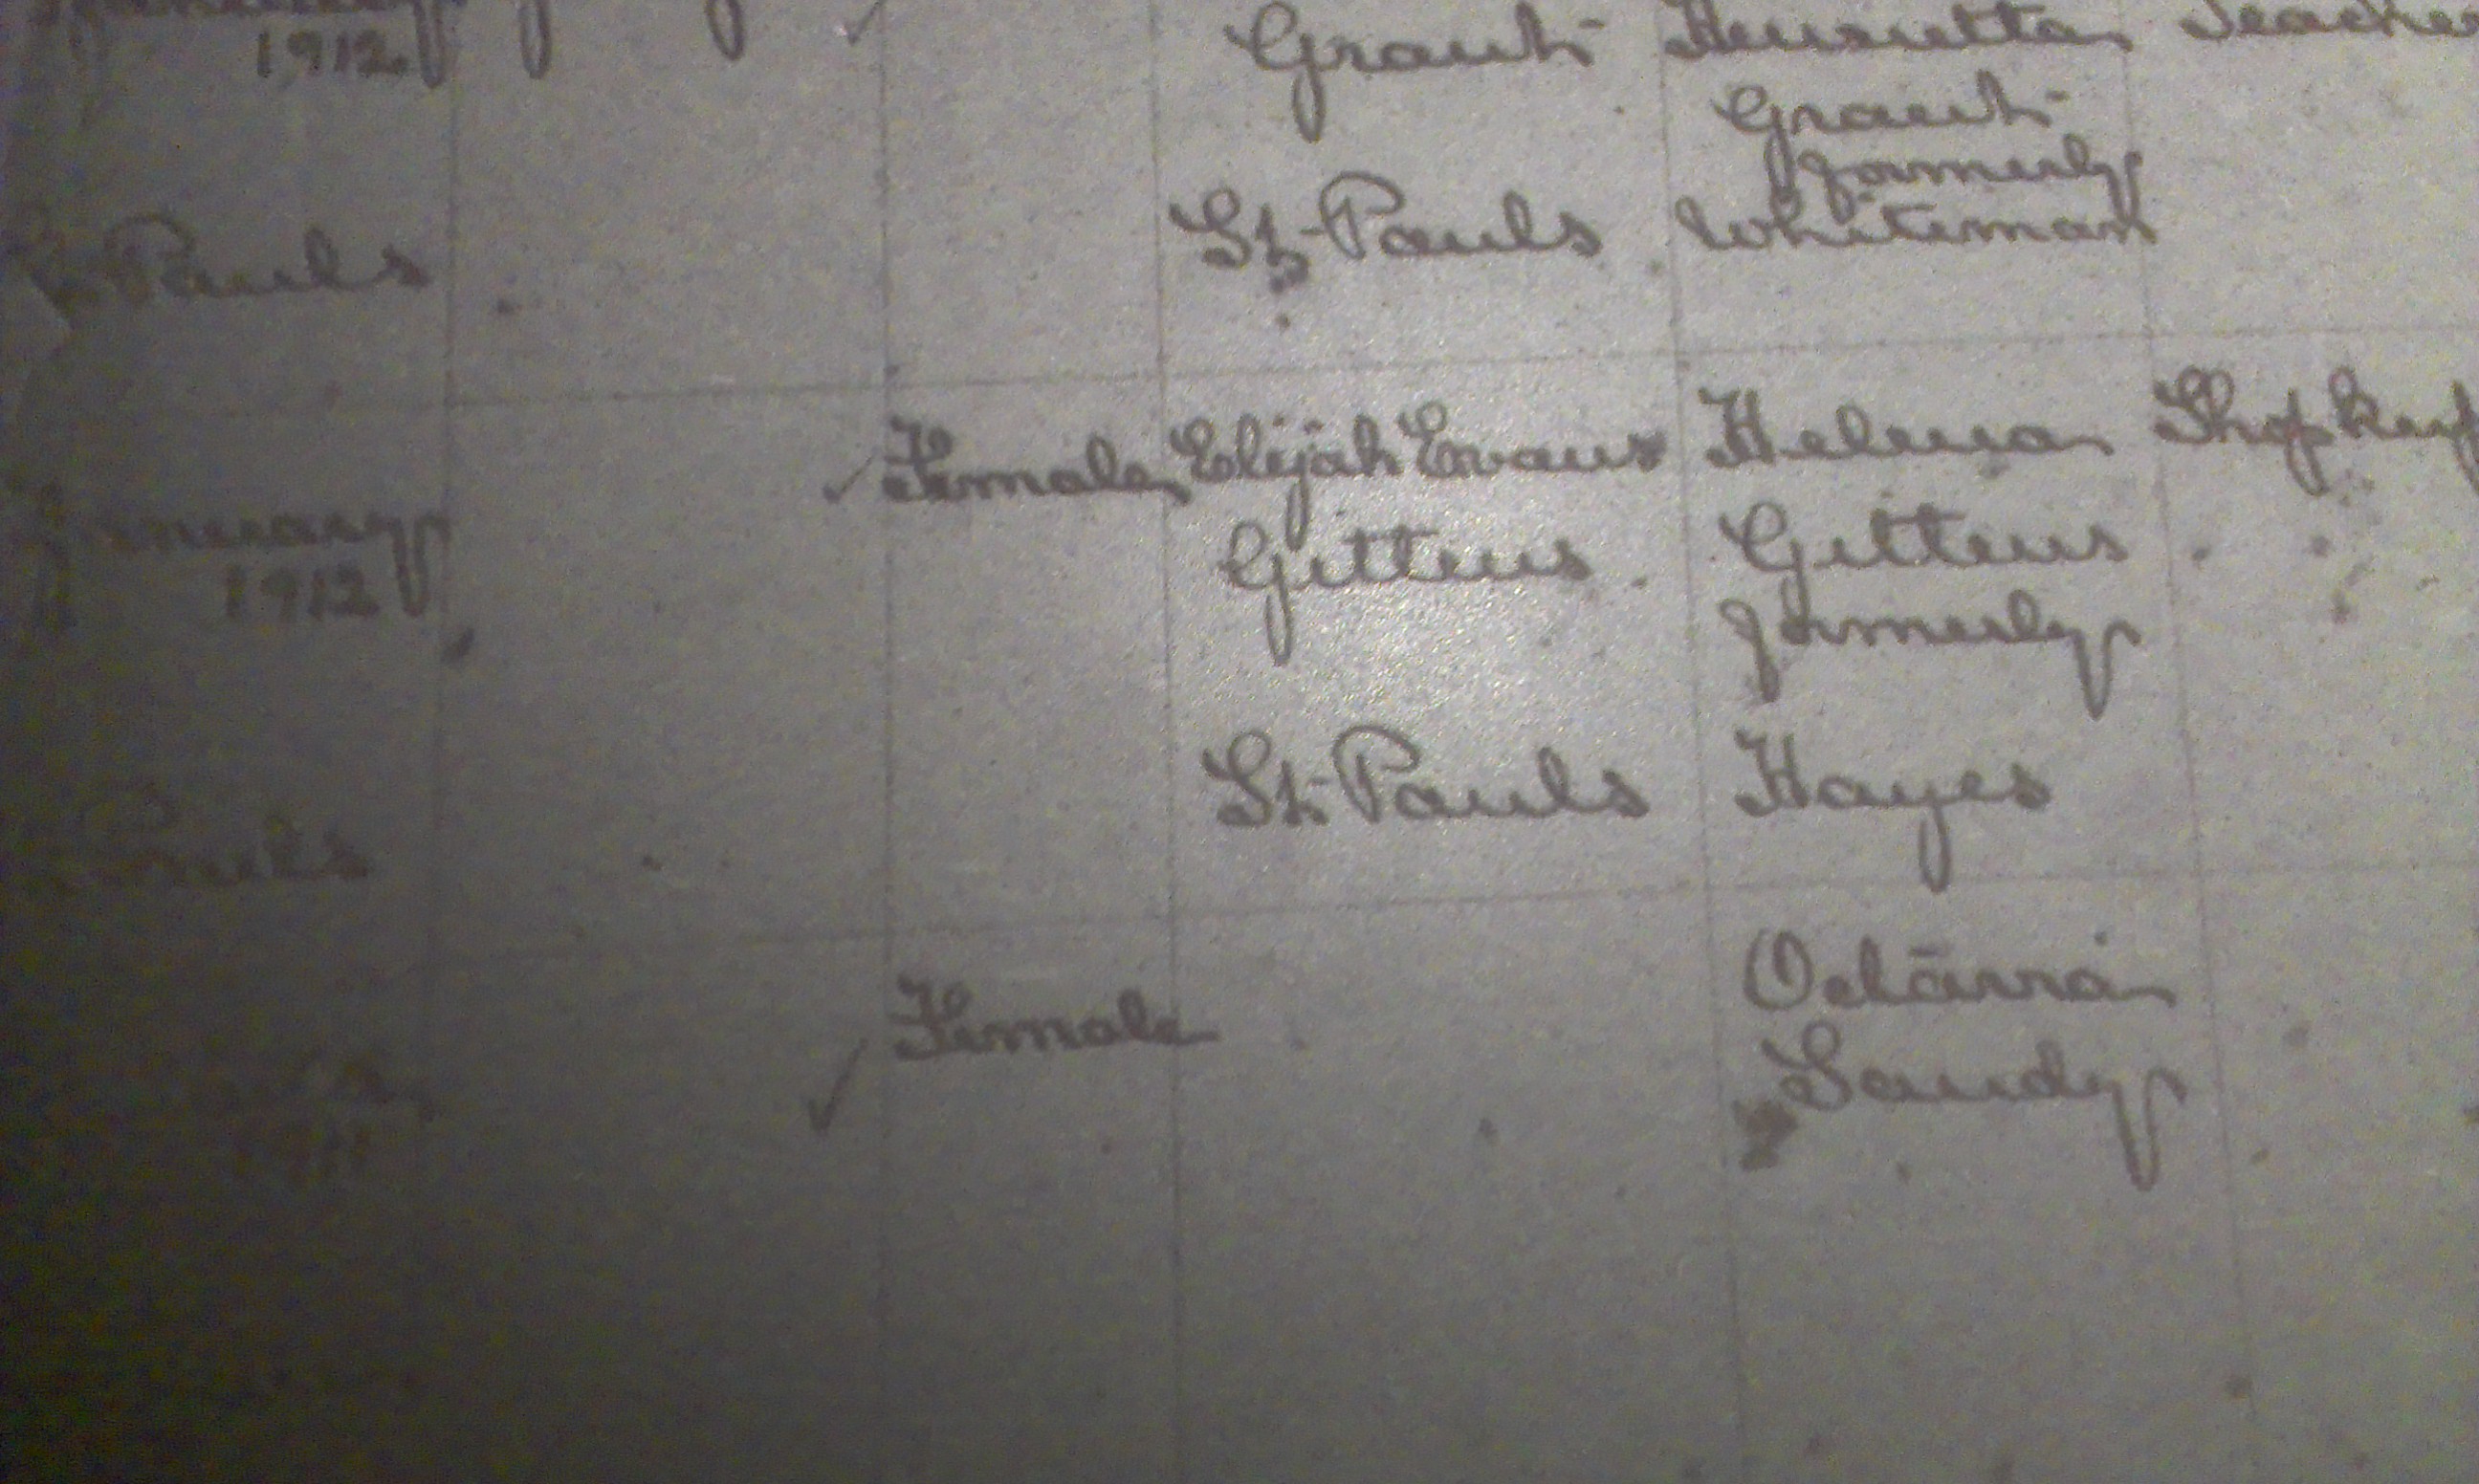 1912
Grant Henrietta Teacher
Grant
formerly
St. Pauls Whiteman
Pauls
Female Elijah Evans Helena Shopkeep
January
1912
Gittens Gittens
formerly
St. Pauls Hayes
Pauls
Female Octavia
Sandy
1911